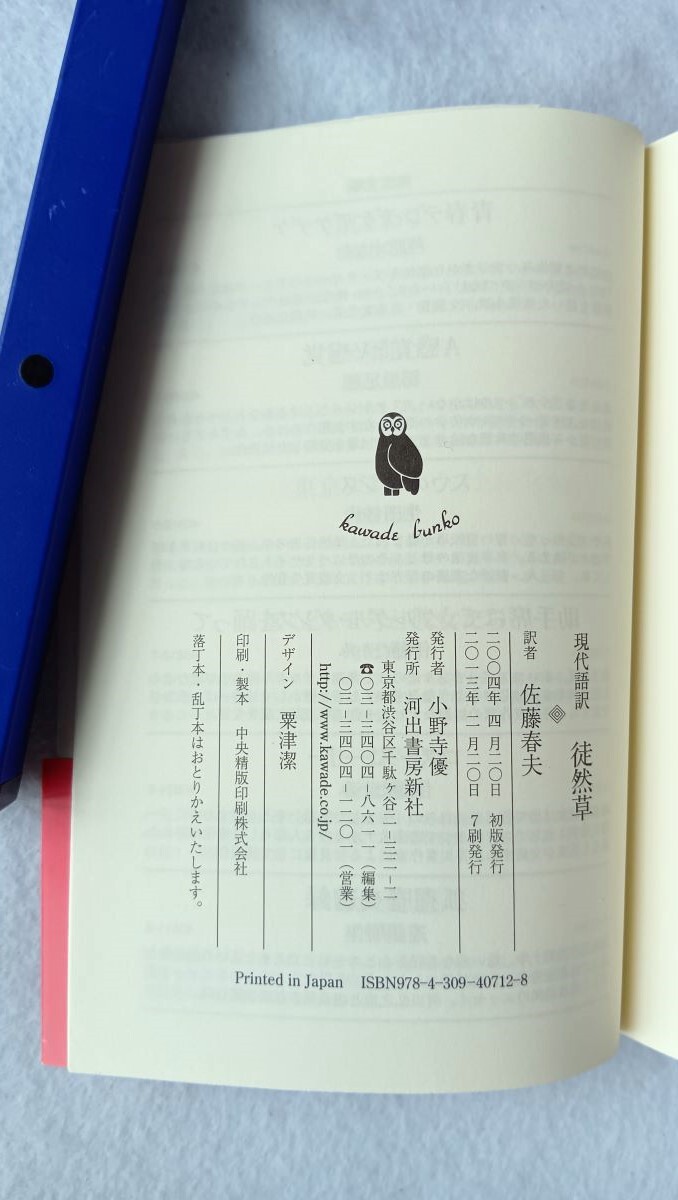 kawade bunko
現代語訳 徒然草
訳者 佐藤春夫
二〇〇四年 四 月二〇日 初版発行
二〇一三年 二 月二〇日 7刷発行
発行者 小野寺優
発行所 河出書房新社
東京都渋谷区千駄ヶ谷二-三二-二
☎〇三-三四〇四-八六一一（編集）
〇三-三四〇四-一二〇一（営業）
http://www.kawade.co.jp/
デザイン 粟津潔
印刷・製本 中央精版印刷株式会社
落丁本・乱丁本はおとりかえいたします。
Printed in Japan ISBN978-4-309-40712-8